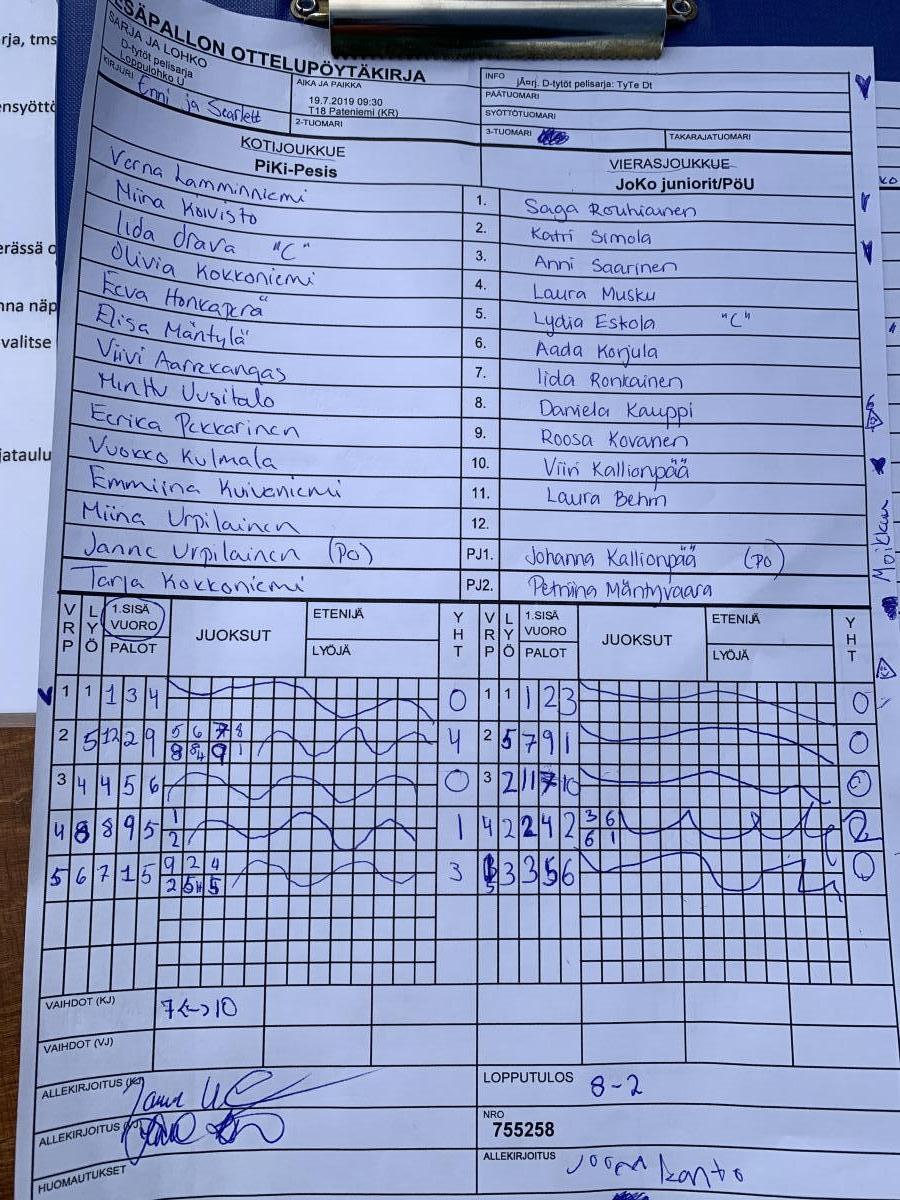 rja, tms
ensyöttö
erässä o
nna näp
valitse
jataulu
ESÄPALLON OTTELUPÖYTÄKIRJA
SARJA JA LOHKO
D-tytöt pelisarja
Loppulohko U
KIRJURI Enni ja Scarlett
AIKA JA PAIKKA
19.7.2019 09:30
T18 Pateniemi (KR)
2-TUOMARI
INFO jÄ¤rj. D-tytöt pelisarja: TyTe Dt
PÄÄTUOMARI
SYÖTTÖTUOMARI
3-TUOMARI TAKARAJATUOMARI
KOTIJOUKKUE VIERASJOUKKUE
PiKi-Pesis JoKo juniorit/PöU
Verna Lamminniemi 1. Saga Rouhiainen
Miina Koivisto 2. Katri Simola
Iida Orava "C" 3. Anni Saarinen
Olivia Kokkoniemi 4. Laura Musku
Eeva Honkaperä 5. Lydia Eskola "C"
Elisa Mäntylä 6. Aada Korjula
Viivi Aarrekangas 7. Iida Ronkainen
Minttu Uusitalo 8. Daniela Kauppi
Eerika Pekkarinen 9. Roosa Kovanen
Vuokko Kulmala 10. Viiri Kallionpää
Emmiina Kuivaniemi 11. Laura Behm
Miina Urpilainen 12.
Janne Urpilainen (Po) PJ1. Johanna Kallionpää (Po)
Tarja Kokkoniemi PJ2. Petriina Mäntyvaara
Moikkuu
VRP LYÖ 1.SISÄ VUORO PALOT JUOKSUT ETENIJÄ LYÖJÄ YHT VRP LYÖ 1.SISÄ VUORO PALOT JUOKSUT ETENIJÄ LYÖJÄ YHT
1 1 1 3 4 0 1 1 1 2 3 0
2 5 12 2 9 5 6 7 8 4 2 5 7 9 1 0
3 4 4 5 6 0 3 2 11 7 10 0
4 8 8 9 5 1 1 4 2 2 4 2 3 6 2
2 6 1
5 6 7 1 5 9 2 4 3 5 3 3 5 6 0
2 5 5
VAIHDOT (KJ) 7<->10
VAIHDOT (VJ)
ALLEKIRJOITUS (KJ) LOPPUTULOS 8-2
ALLEKIRJOITUS (VJ) NRO
755258
HUOMAUTUKSET ALLEKIRJOITUS Joona Kanto